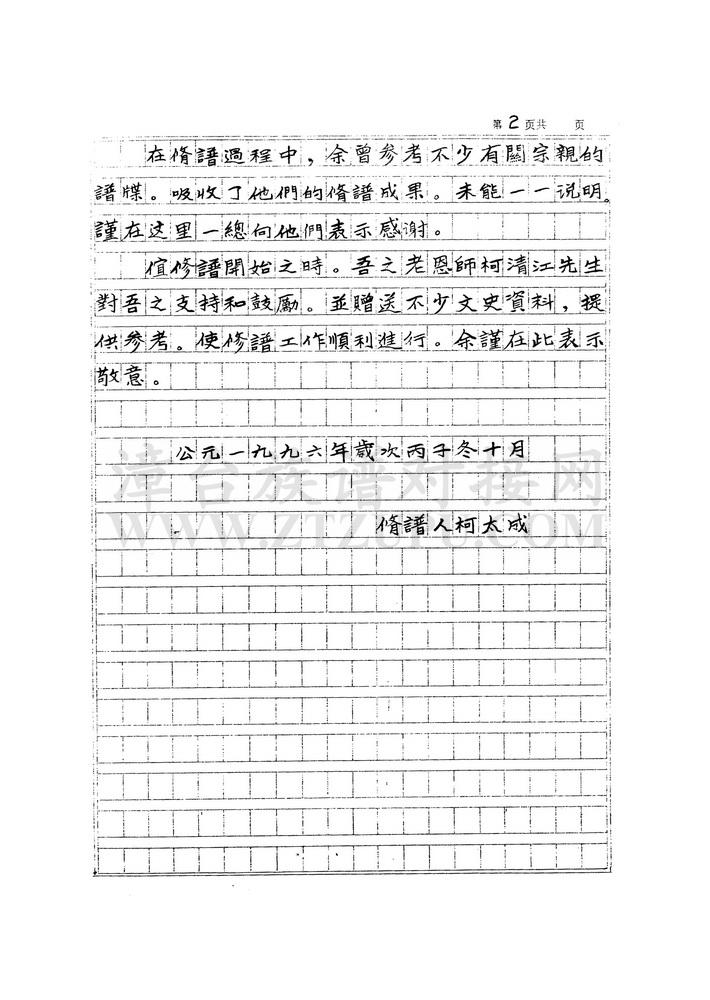 第2页共　页
在脩譜過程中，余曾參考不少有關宗親的
譜牒。吸收了他們的脩譜成果。未能一一说明。
謹在这里一總向他們表示感谢。
值修譜開始之時。吾之老恩師柯清江先生
對吾之支持和鼓励。並贈送不少文史資料，提
供參考。使修譜工作順利進行。余謹在此表示
敬意。
公元一九九六年歲次丙子冬十月
漳台族谱对接网
WWW.ZTZUPU.COM
脩譜人柯太成